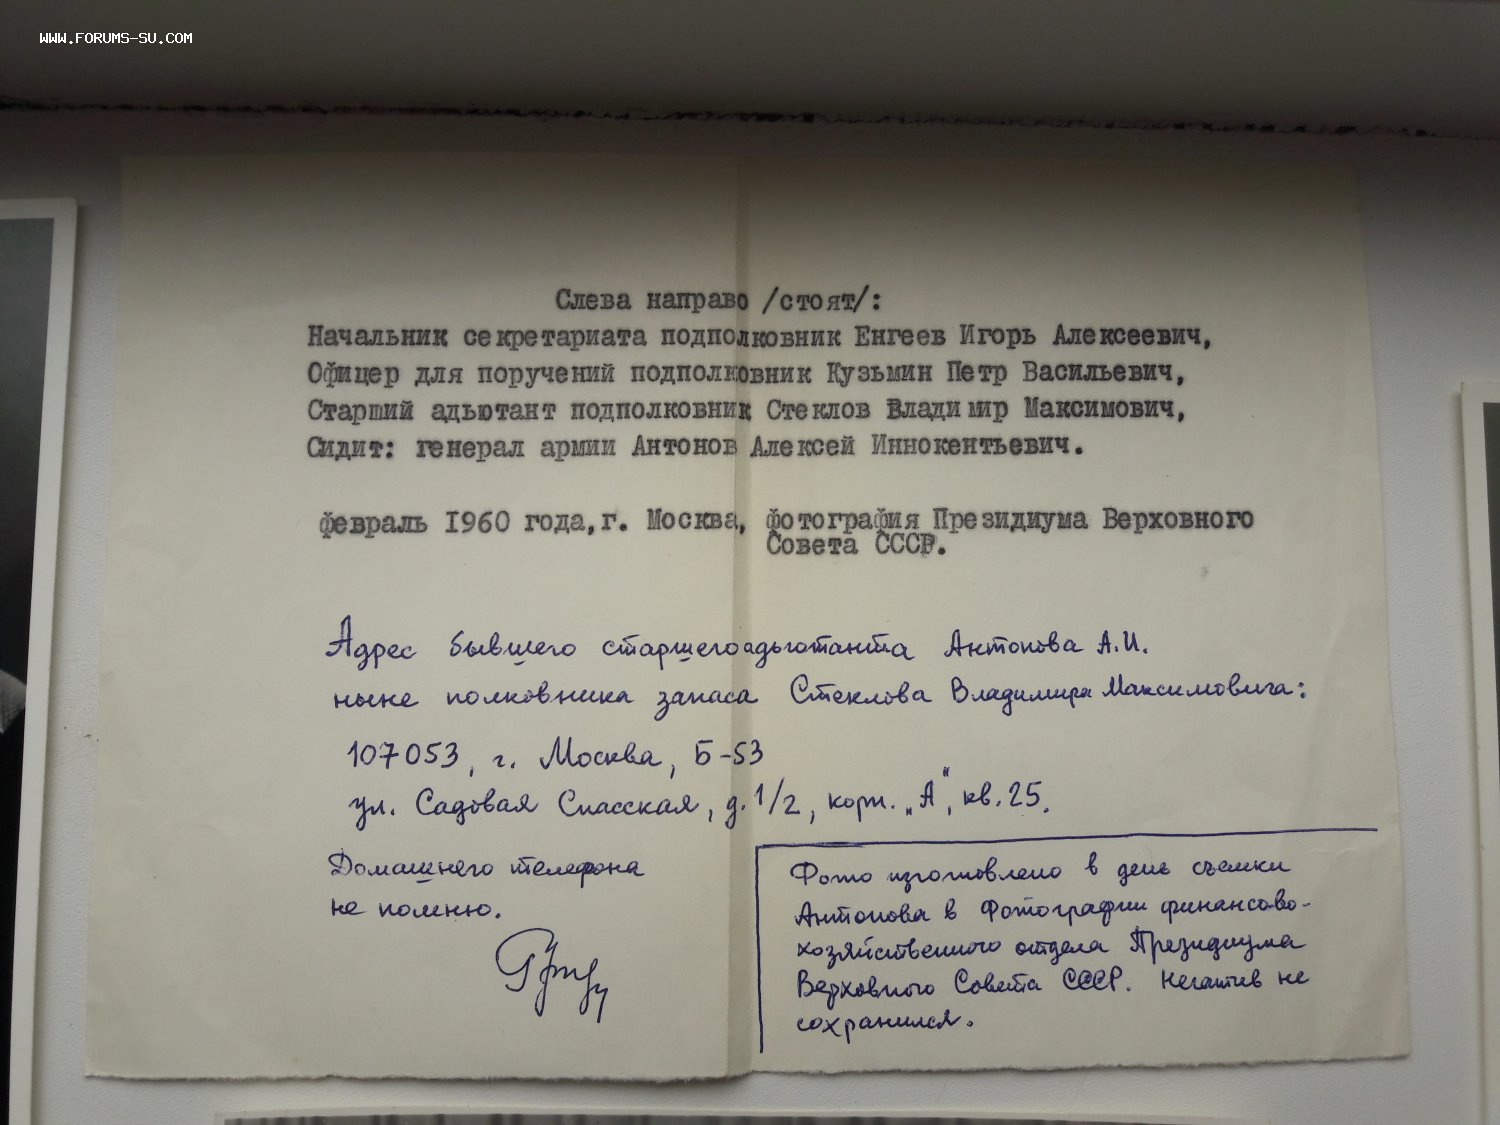 WWW.FORUMS-SU.COM
Слева направо /стоят/:
Начальник секретариата подполковник Енгеев Игорь Алексеевич,
Офицер для поручений подполковник Кузьмин Петр Васильевич,
Старший адьютант подполковник Стеклов Владимир Максимович,
Сидит: генерал армии Антонов Алексей Иннокентьевич.
февраль 1960 года, г. Москва, фотография Президиума Верховного
Совета СССР.
Адрес бывшего старшего адьютанта Антонова А.И.
ныне полковника запаса Стеклова Владимира Максимовича:
107053, г. Москва, Б-53
ул. Садовая Спасская, д. 1/2, корп. „А", кв. 25.
Домашнего телефона
не помню.
Фото изготовлено в день съемки
Антонова в Фотографии финансово-
хозяйственного отдела Президиума
Верховного Совета СССР. Негатив не
сохранился.